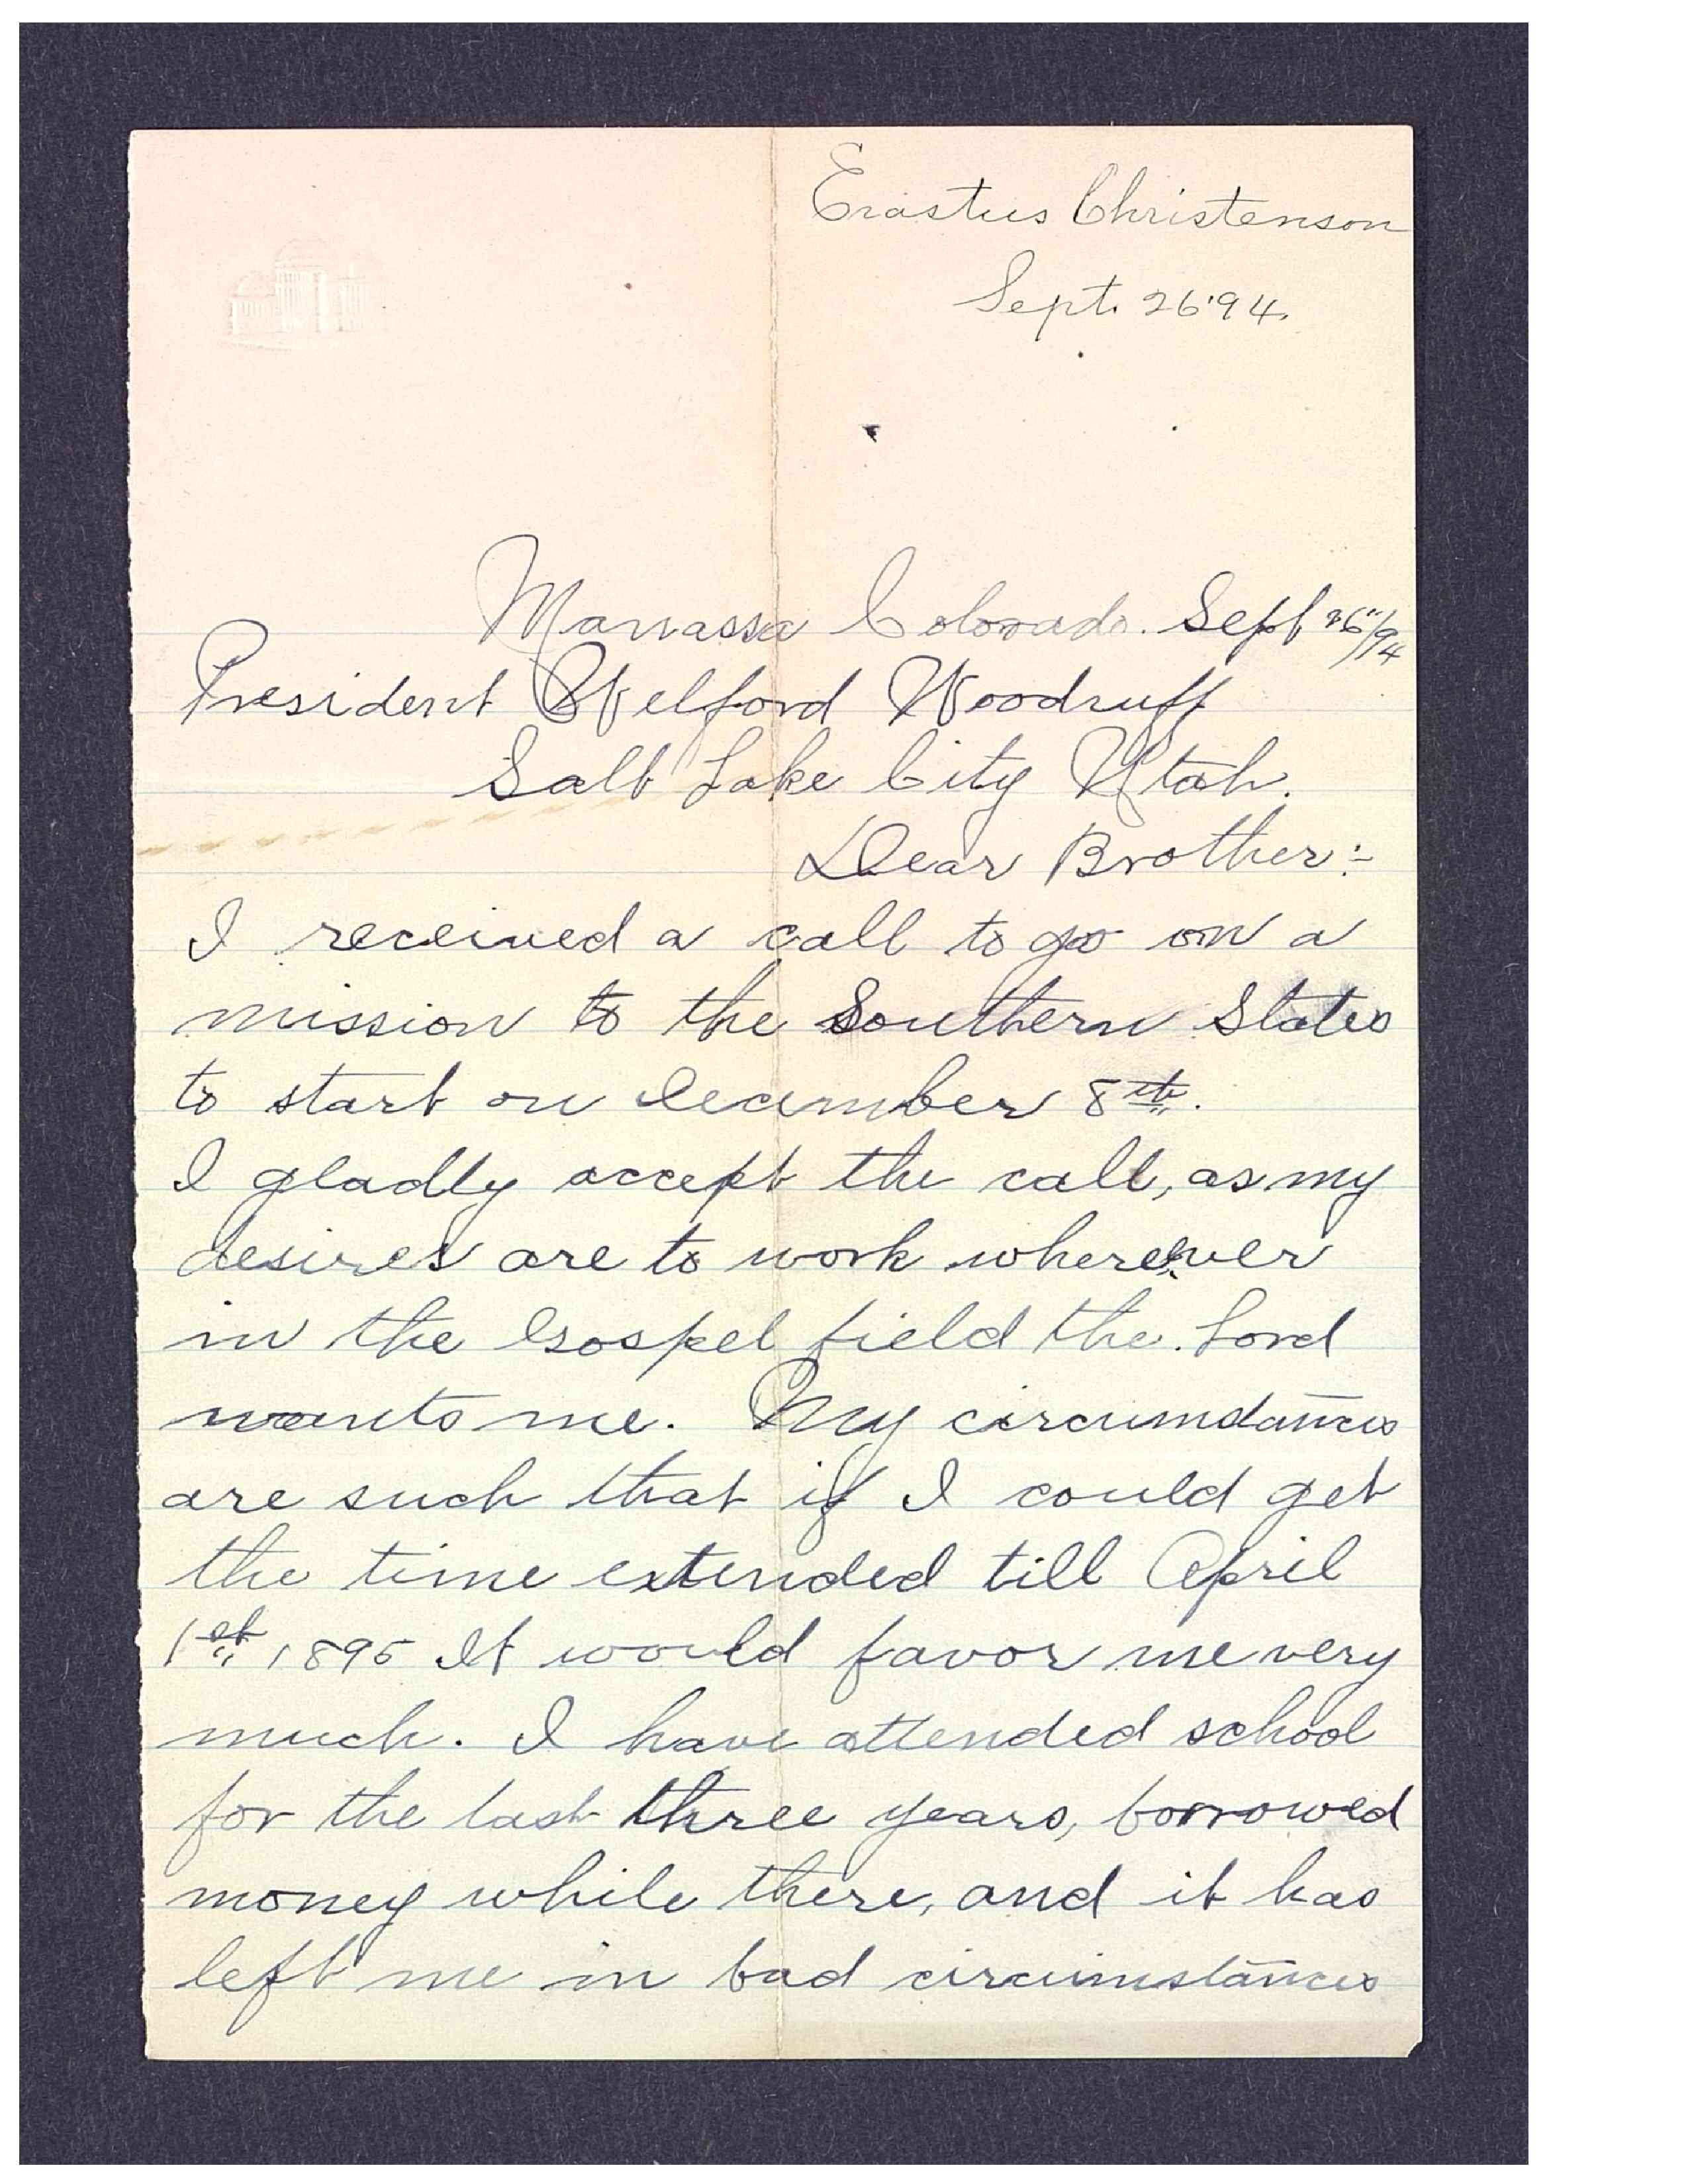 Erastus Christenson
Sept. 26 '94.
Manassa Colorado. Sept 26"/94
President Welford Woodruff
Salt Lake City Utah.
Dear Brother:-
I received a call to go on a
mission to the Southern States
to start on December 8th.
I gladly accept the call, as my
desires are to work wherever
in the Gospel field the Lord
wants me. My circumstances
are such that if I could get
the time extended till April
1st 1895 It would favor me very
much. I have attended school
for the last three years, borrowed
money while there, and it has
left me in bad circumstances